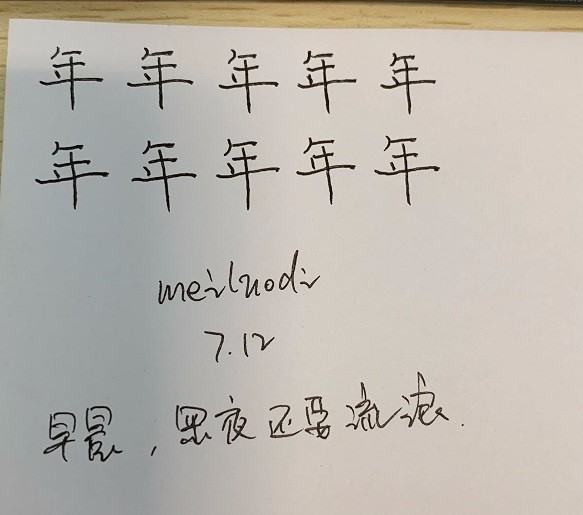 年 年 年 年 年
年 年 年 年 年
meiluodi
7.12
早晨，黑夜还要流浪.